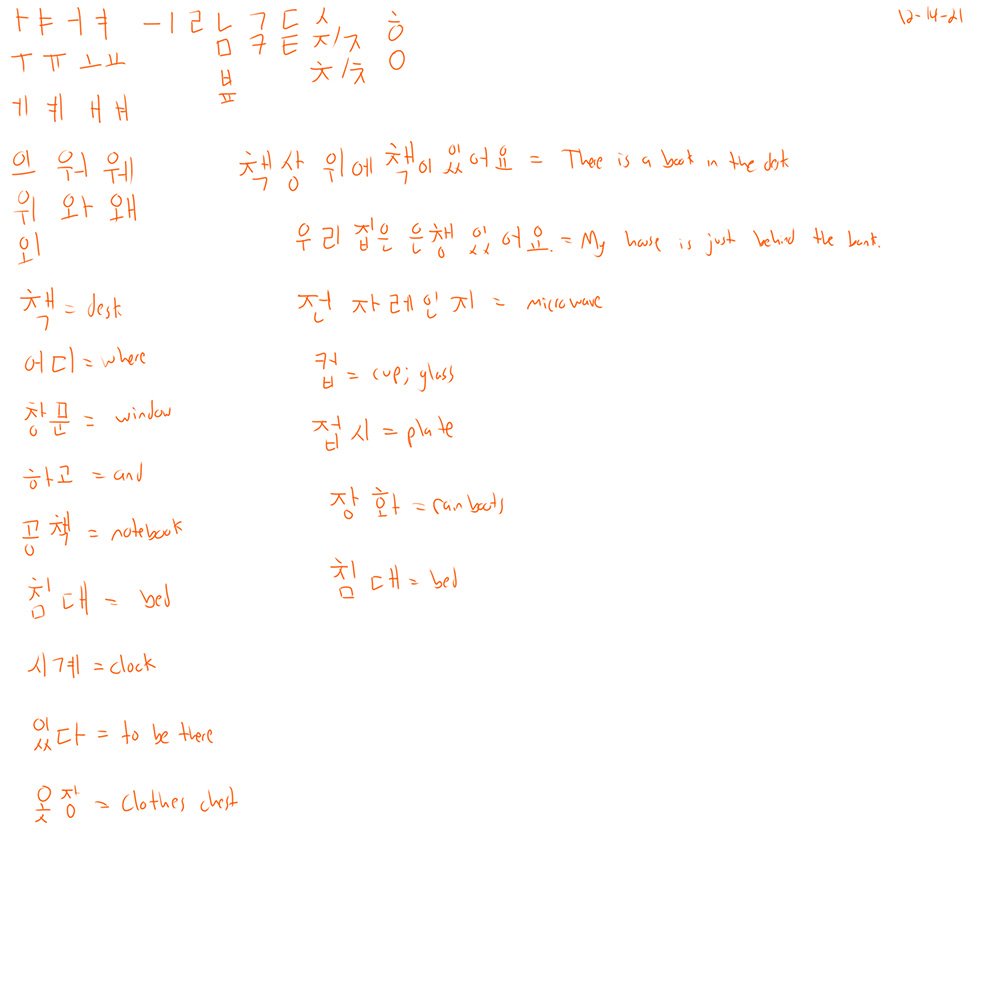 ㅏ ㅑ ㅓ ㅕ ㅡ ㅣ ㄹ ㄴ ㄱ ㄷ ㅅ ㅎ 12-14-21
ㅁ ㅋ ㅌ ㅈ/ㅈ ㅇ
ㅜ ㅠ ㅗ ㅛ ㅂ ㅊ/ㅊ
ㅍ
ㅔ ㅖ ㅐ ㅒ
으 워 웨
위 와 왜
외
책상 위에 책이 있어요 = There is a book in the desk
우리 집은 은챙 있어요. = My house is just behind the bank.
책 = desk
어디 = where
창문 = window
하고 = and
공책 = notebook
침대 = bed
시계 = clock
있다 = to be there
옷장 = clothes chest
전자레인지 = microwave
컵 = cup; glass
접시 = plate
장화 = rain boots
침대 = bed